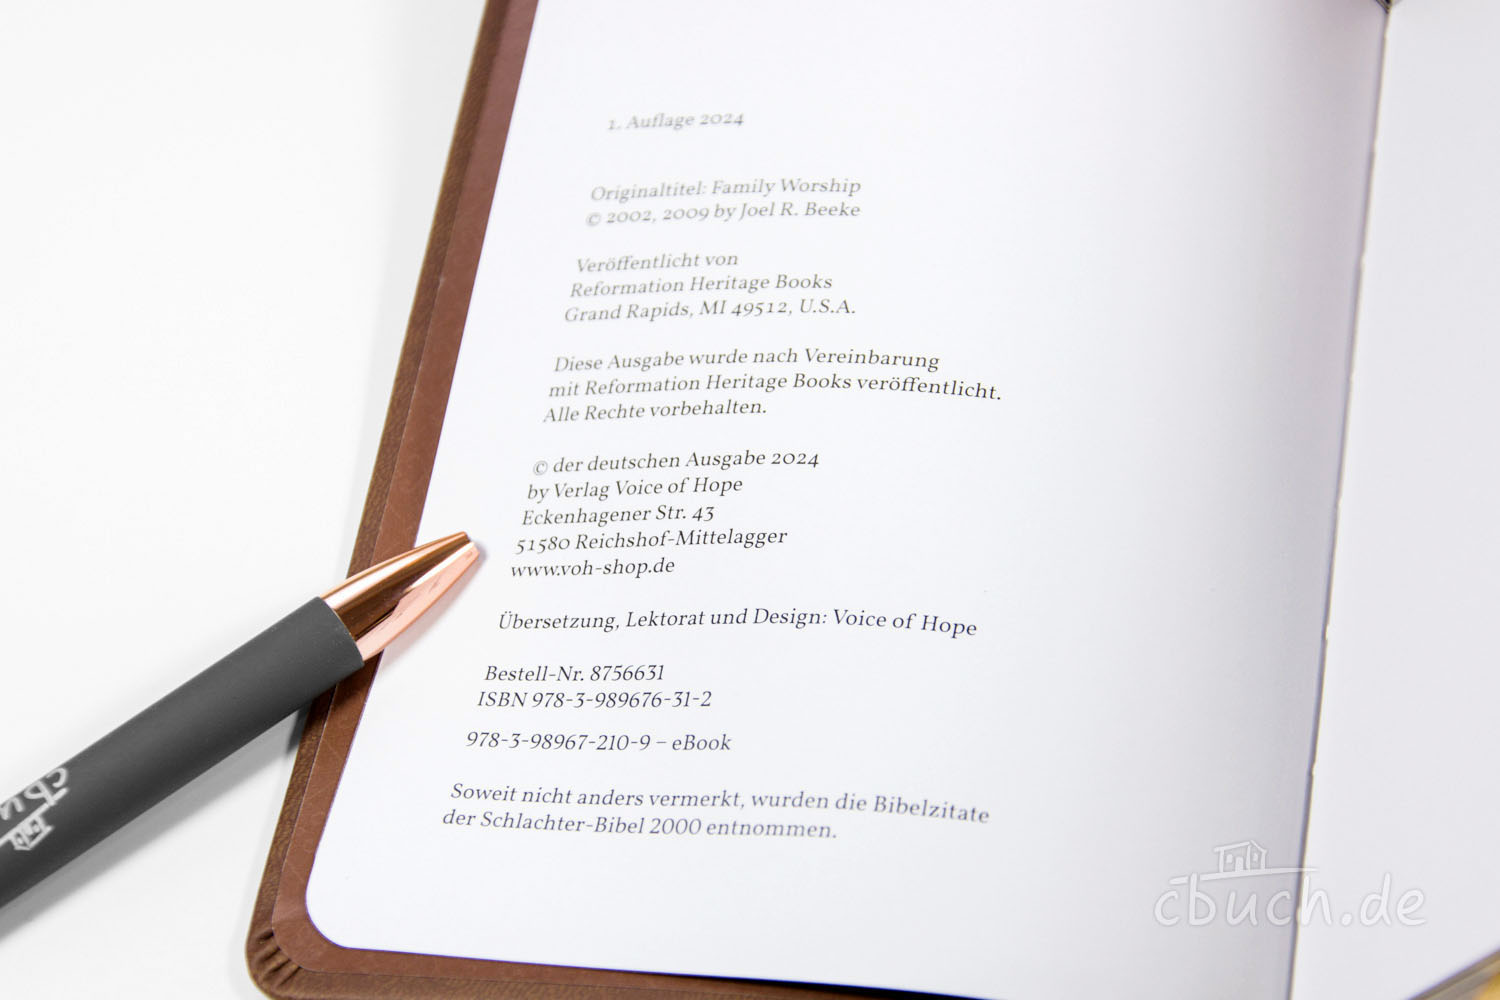 1. Auflage 2024
Originaltitel: Family Worship
© 2002, 2009 by Joel R. Beeke
Veröffentlicht von
Reformation Heritage Books
Grand Rapids, MI 49512, U.S.A.
Diese Ausgabe wurde nach Vereinbarung
mit Reformation Heritage Books veröffentlicht.
Alle Rechte vorbehalten.
© der deutschen Ausgabe 2024
by Verlag Voice of Hope
Eckenhagener Str. 43
51580 Reichshof-Mittelagger
www.voh-shop.de
Übersetzung, Lektorat und Design: Voice of Hope
Bestell-Nr. 8756631
ISBN 978-3-989676-31-2
978-3-98967-210-9 – eBook
Soweit nicht anders vermerkt, wurden die Bibelzitate
der Schlachter-Bibel 2000 entnommen.
cbuch.de